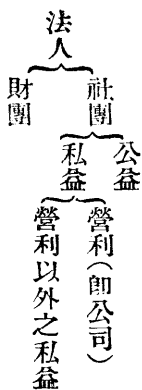 法人
社團
財團
公益
私益
營利（卽公司）
營利以外之私益